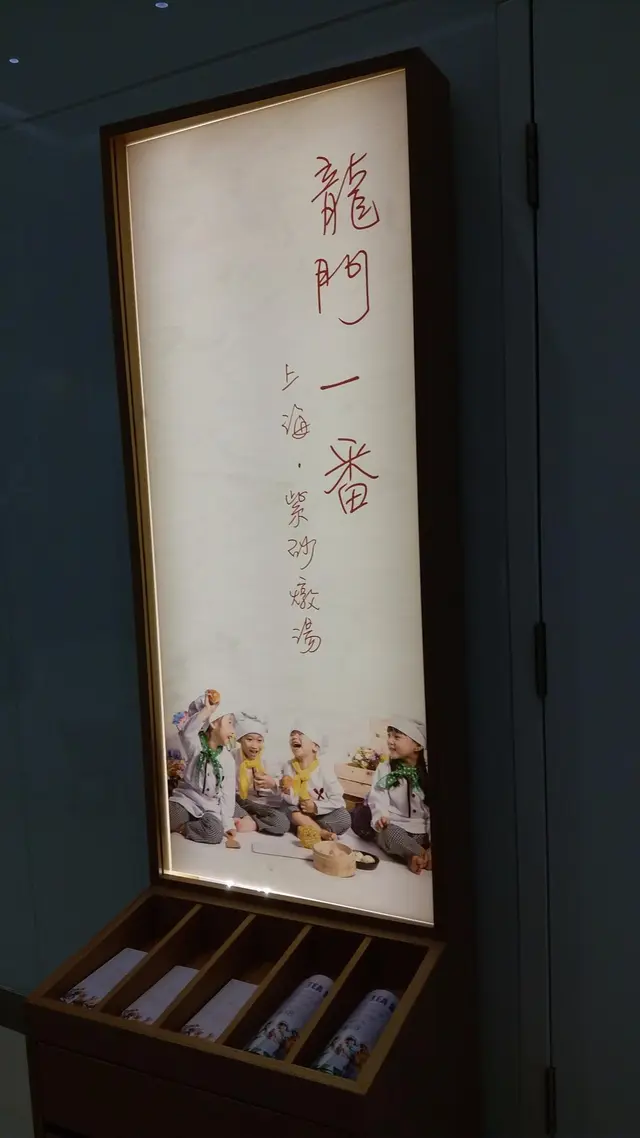 龍門一番
上海·紫砂燉湯
TEA
TEA